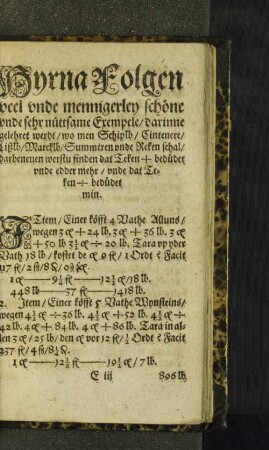 Hyrna Folgen
veel vnde mennigerley schöne
vnde sehr nüttsame Exempele/ darinne
gelehret werdt/ wo men Schiplb/ Cintenere/
Lißlb/ Marcklb/ Summeren vnde Reken schal/
darbeneuen werstu finden dat Teken + bedüdet
vnde edder mehr/ vnde dat Te-
ken ÷ bedüdet
min.
Item/ Einer köfft 4 Vathe Alluns/
wegen 3 ꝯ + 24 lb. 3 ꝯ + 36 lb. 3 ꝯ
+ 50 lb 3½ ꝯ ÷ 20 lb. Tara vp yder
Vath 18 lb/ kostet de ꝯ 9 fl/ 1 Ordt
1 ꝯ — 9¼ fl — 12½ ꝯ/ 18 lb.
448 lb — 37 fl — 1418 lb.
2. Item/ Einer köfft 5 Vathe Wynsteins/
wegen 4½ ꝯ ÷ 36 lb. 4½ ꝯ + 52 lb. 4½ ꝯ ÷
42 lb. 4 ꝯ + 84 lb. 4 ꝯ + 86 lb. Tara in al-
len 3 ꝯ/ 25 lb/ den ꝯ vor 12 fl/ ½ Ordt
E iij 896 lb.